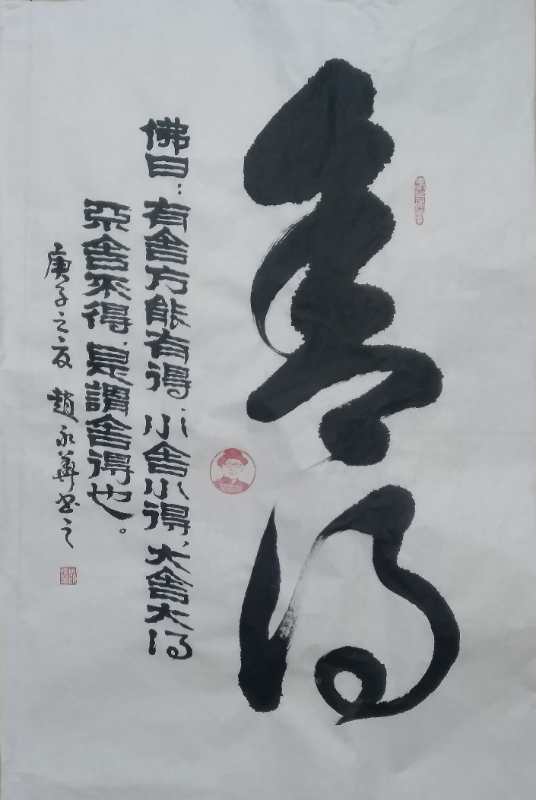 舍得
佛曰：有舍方能有得；小舍小得、大舍大得
舍不得，是謂舍得也。
庚子之夏 趙永華書之